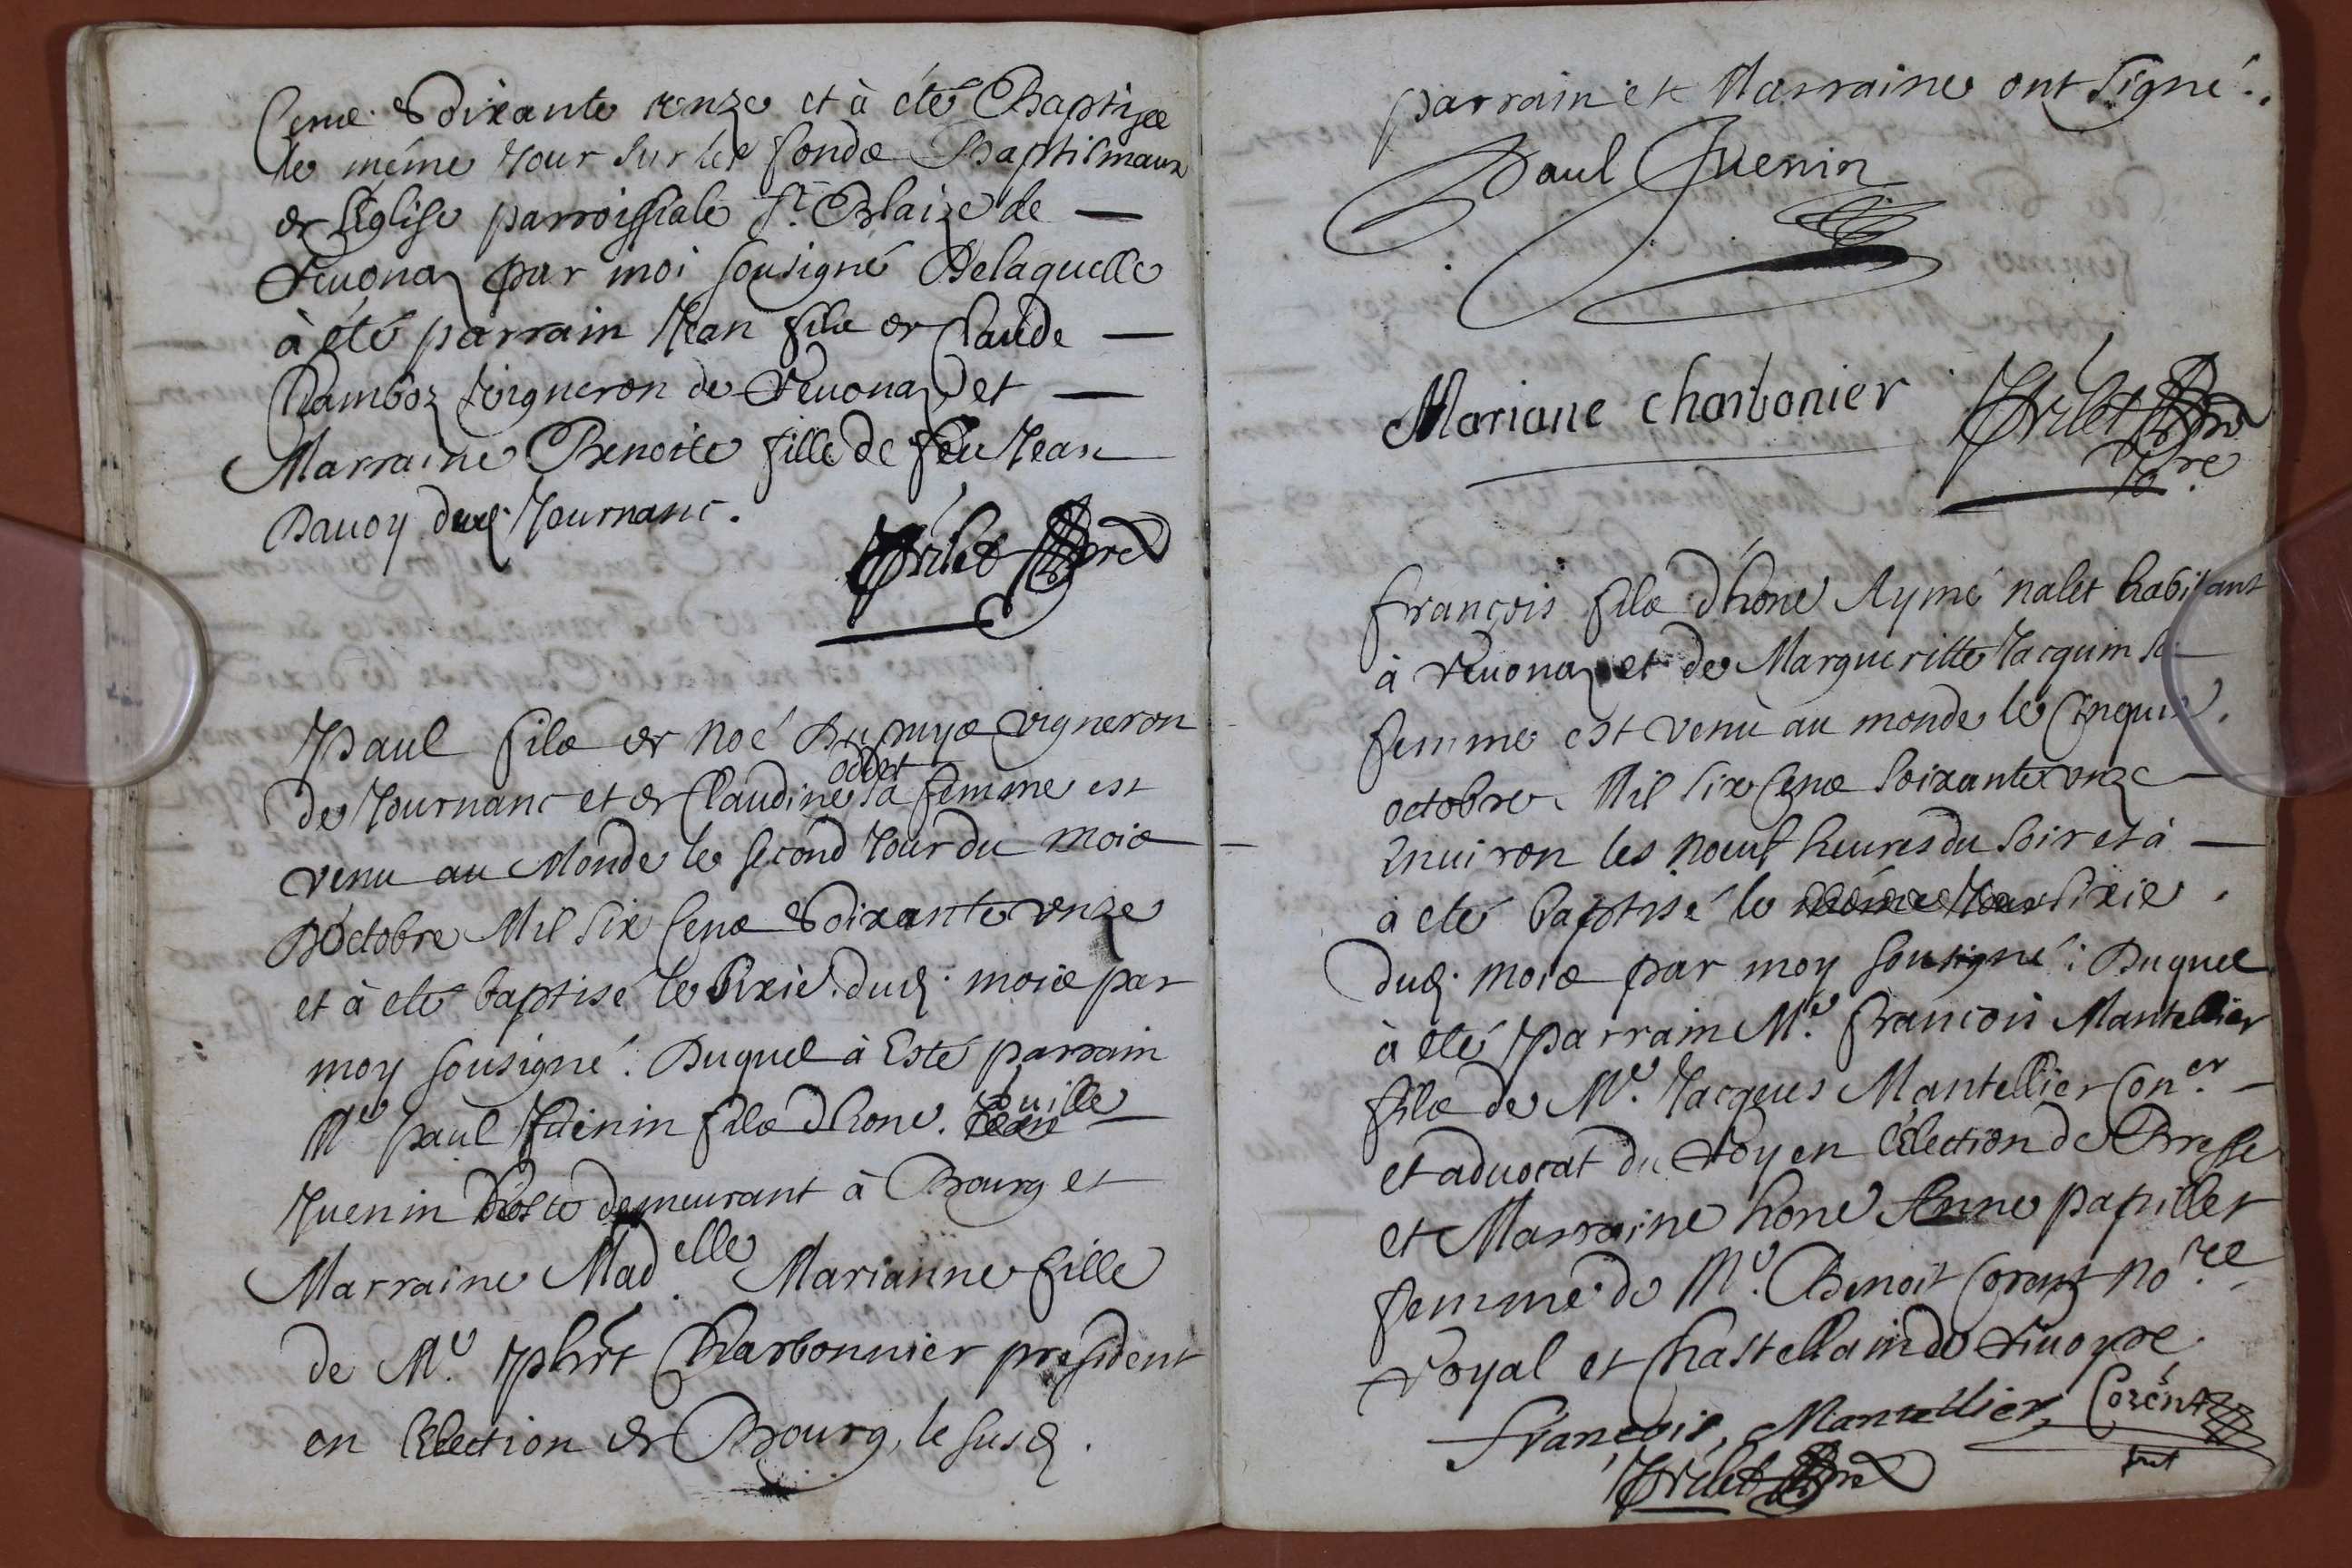 Cens Soixante onze et à été Baptisee
le même Jour sur les fonds Baptismaux
de l'Eglise parroissiale St. Blaize de —
Reuonaz par moi sousigné Delaquelle
à été parrain Jean fils de Claude —
Chamboz vigneron de Reuonaz et —
Marraine Benoite fille de feu Jean
Dauoy dud. Journanc.
Trilet pre
Paul fils de Noé Dupuys vigneron
de Journanc et de Claudine oddet sa femme est
venu au Monde le second Jour du mois
D'octobre Mil six Cens Soixante onze
et à eté baptisé le Sixie. dud. mois par
moy sousigné. Duquel à Esté parrain
Me. paul Juenin fils d'hone. touille
Juenin hoste demeurant à Bourg et
Marraine Madelle. Marianne fille
de Me. phrt Charbonnier president
en l'Election de Bourg, le susd.
parrain et Marraine ont signé.
Paul Juenin
Mariane charbonier
Trilet pre
françois fils d'hone Aymé nalet habitant
à Reuonaz et de Margueritte Jacquin sa
femme est venu au monde le Cinquie.
octobre Mil six Cens soixante onze —
Enuiron les nœuf heures du soir et à —
à eté baptisé le même Jour sixie.
dud. mois par moy sousigné: Duquel
à été parrain Me. françois Mantellier
fils de Me. Jacques Mantellier Coner. —
et aduocat du Roy en l'Election de Bresse
et Marraine hone Anne papillet
femme de Me. Benoit Corent nore
Royal et Chastellain de Riuoyre.
françois, Mantellier, Corent
Trilet pre